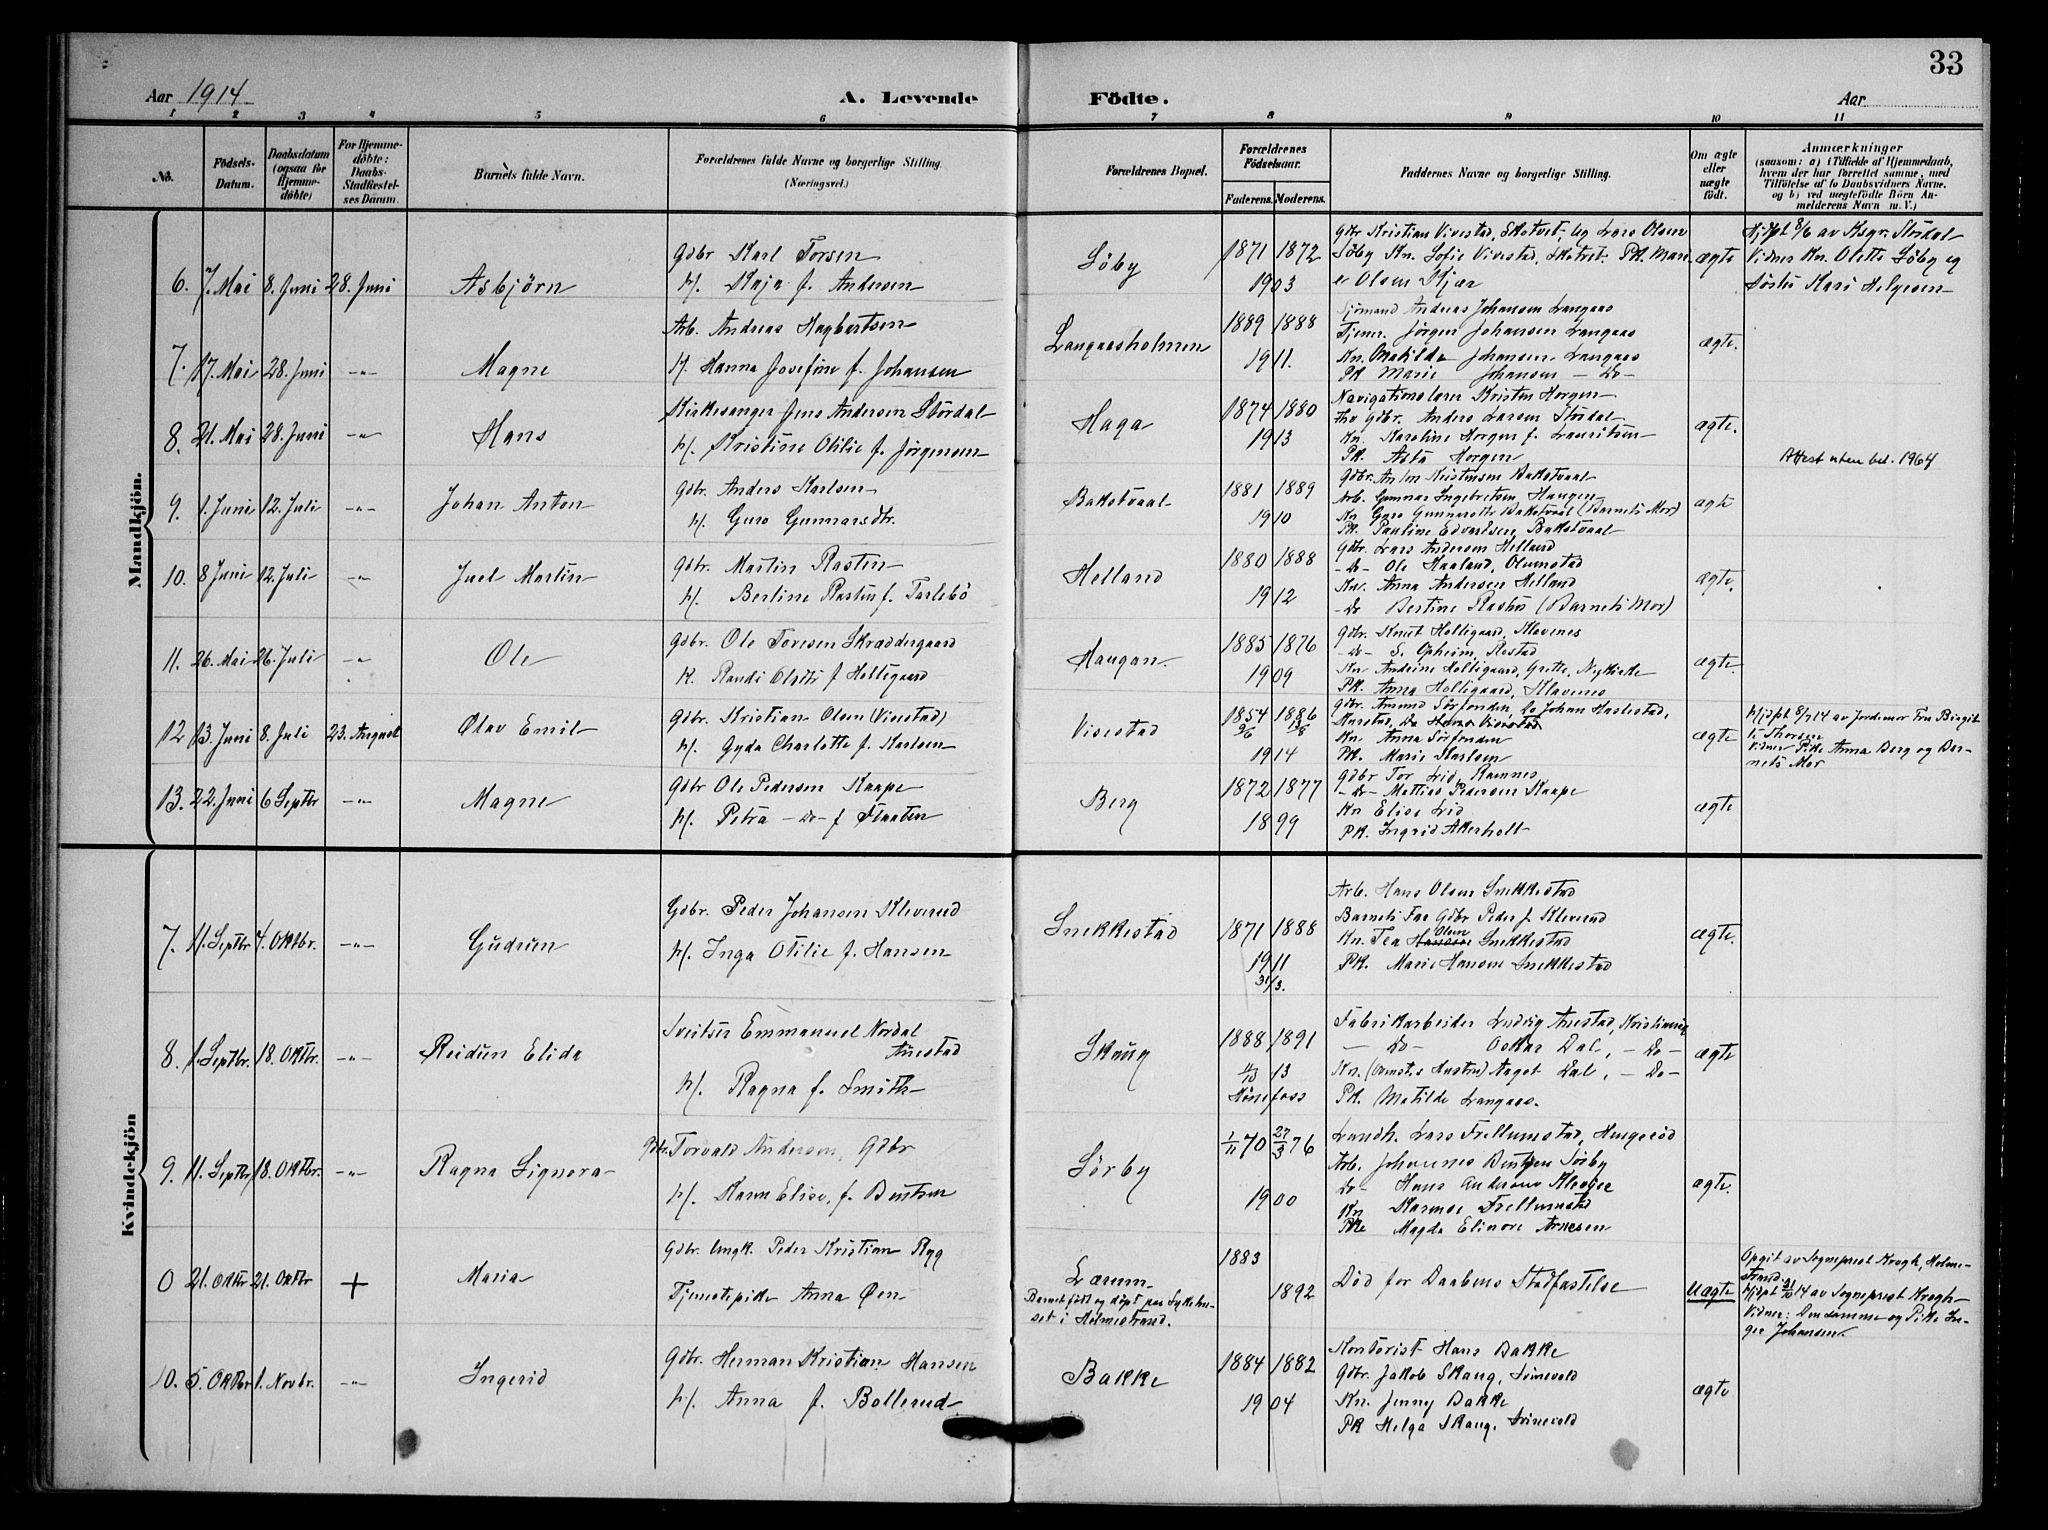 33
Aar 1914
A. Levende Födte.
Aar
1 2 3 4 5 6 7 8 9 10 11
No.
Födsels-Datum.
Daabsdatum (ogsaa for Hjemme-döbte)
For Hjemme-döbte: Daabs-Stadfæstel-ses Datum.
Barnets fulde Navn.
Forældrenes fulde Navne og borgerlige Stilling. (Næringsvei.)
Forældrenes Bopæl.
Forældrenes Födselsaar.
Faderens. Moderens.
Faddernes Navne og borgerlige Stilling.
Om ægte eller uægte födt.
Anmærkninger
(saasom: a) i Tilfælde af Hjemmedaab, hvem der har forrettet samme, med Tilföielse af to Daabsvidners Navne. og b) ved uægtefödte Börn An-melderens Navn m. V.)
Mandkjön.
6. 7. Mai 8. Juni 28. Juni Asbjörn
Gdbr Karl Torsen
H. Maja f. Andersen
Söby
1871 1872
1903
Gdbr Kristian Vivestad, Skotvet, og Lars Olsen
Söby Kn. Sofie Vivestad, Skotvet. Pk. Mari-
e Olsen Kjær
ægte
Hjdpt 8/6 av Ksgr. Stördal
Vidner Kn. Olette Söby og
Kari Helgesen
7. 17. Mai 28. Juni -"- Magne
Arb. Andreas Hagbertsen
H. Hanna Josefine f. Johansen
Langaasholmen
1889 1888
1911.
Sjömand Andreas Johansen Langaas
Tjener. Jörgen Johansen Langaas
Kn. Matilde Johansen Langaas
Pk Marie Johansen - Do -
ægte.
8. 21. Mai 28. Juni -"- Hans
Kirkesanger Jens Andersen Stördal
H. Kristine Otilie f. Jörgensen
Haga
1874 1880
1913
Navigationslærer Kristen Horgen
Gdbr. Anders Larsen Stördal
Kn. Karoline Horgen f. Lauritsen
Pk. Asta Horgen
ægte.
Attest uten bet. 1964
9. 1. Juni 12. Juli -"- Johan Anton
Gdbr. Anders Karlsen
H. Guro Gunnarsdtr.
Bakstvaal
1881 1889
1910
Gdbr. Anton Kristensen Bakstvaal
Arb. Gunnar Ingebretsen, Haugen
Kn Guro Gunnarsdtr Bakstvaal (Barnets Mor)
Pk. Pauline Edvardsen, Bakstvaal
ægte
10. 8 Juni 12. Juli -"- Juel Martin
Gdbr. Martin Rasten
H. Bertine Rasten f. Tarlebö
Helland
1880 1888
1912
Gdbr. Lars Andersen Helland
- Do - Ole Haaland, Olumstad
Kn. Anna Andersen Helland
- Do Bertine Rasten (Barnets Mor)
ægte.
11. 26. Mai 26. Juli -"- Ole
Gdbr. Ole Toresen Skræddergaard
H. Randi Olette f Holtegaard
Haugan
1885 1876
1909
Gdbr. Knut Holtegaard, Klavenes
- Do - S. Opheim, Restad
Kn Andrine Holtegaard, Grette, Nykirke
Pk. Anna Holtegaard, Klavenes
ægte.
12 13. Juni 8. Juli 23. August Olav Emil
Gdbr. Kristian Olsen (Vivestad)
H. Gyda Charlotte f. Karlsen
Vivestad
1854 1886
1914
Gdbr. Amund Sörfonden, Do Johan Haslestad,
Vivestad
Kn. Anna Sörfonden
Pk. Marie Karlsen
ægte
Hjdpt 8/7 14 av Jordmor Fru Birgit
Thorsen
Vidner Pike Anna Berg og Bar-
nets Mor
13. 22. Juni 6 Septbr -"- Magne
Gdbr Ole Pedersen Kaape
H. Petra - Do - f Flaaten
Berg
1872 1877
1899
Gdbr Tor Lid, Ramnes
- Do - Mattias Pedersen Kaape
Kn Elise Lid
Pk. Ingrid Akerholt
ægte
Kvindekjön
7. 11. Septbr 4. Oktbr. -"- Gudrun
Gdbr. Peder Johansen Kleverud
H. Inga Otilie f. Hansen
Snekkestad
1871 1888
1911
31/3.
Arb. Hans Olsen Snekkestad
Barnets Far Gdbr Peder J. Kleverud
Kn. Tea Olsen Snekkestad
Pk. Marie Hansen Snekkestad
ægte.
8. 1. Septbr. 18. Oktbr. -"- Reidun Elida
Sveitser Emmanuel Nordal
Aurstad
H. Ragna f. Smith
Skaug
1888 1891
11/10 13
Hönefoss
Fabrikarbeider Ludvig Aurstad, Kristiania
- Do - Oskar Dal, - Do -
Kn. Aagot Dal, - Do -
Pk. Matilde Langaas.
ægte
9. 11. Septbr 18. Oktbr. -"- Ragna Signora
Torvald Andersen, Gdbr
H. Karen Elise, f. Bentsen
Sörby
1/11 70 27/3 76
1900
Landh. Lars Frellumstad, Haugeröd
Arb. Johannes Bentsen Sörby
Do - Hans Andersen Klevjer
Kn Karense Frellumstad
Pke Magda Elinore Arnesen
ægte.
0 21. Oktbr 21. Oktbr + Maria
Gdbr. Ungk. Peder Kristian Rygg
Tjenestepike Anna Öen
Lærum
Barnet födt og döpt paa Sykehu-
set i Holmestrand.
1883
1892
Död for Daabens Stadfæstelse
Uægte
Opgit av Sogneprest Krogh, Holme-
strand.
Hjdpt 21/10 14 av Sogneprest Krogh
Vidner: Den samme og Pike In-
ger Johansen.
10. 5. Oktbr 1. Novbr. -"- Ingerid
Gdbr. Herman Kristian Hansen
H. Anna f. Bollerud
Bakke
1884 1882
1904
Kontorist Hans Bakke
Gdbr. Jakob Skaug, Svinevold
Kn. Jenny Bakke
Pk Helga Skaug, Svinevold
ægte